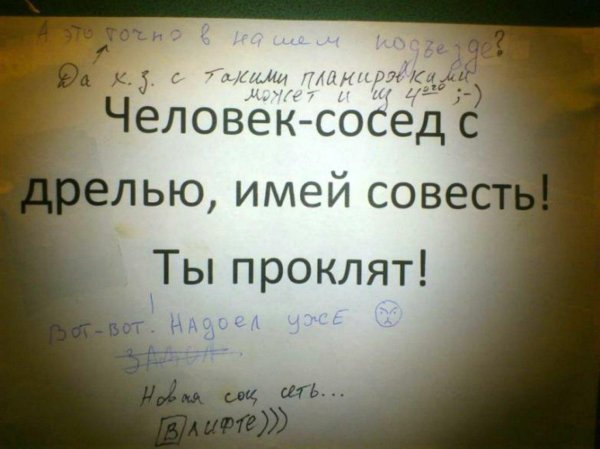 А это точно в нашем подъезде?
Да х.з. с такими планировками
может и из 4ого ;-)
Человек-сосед с
дрелью, имей совесть!
Ты проклят!
Вот-вот! Надоел уже
Новая соц сеть...
В лифте)))